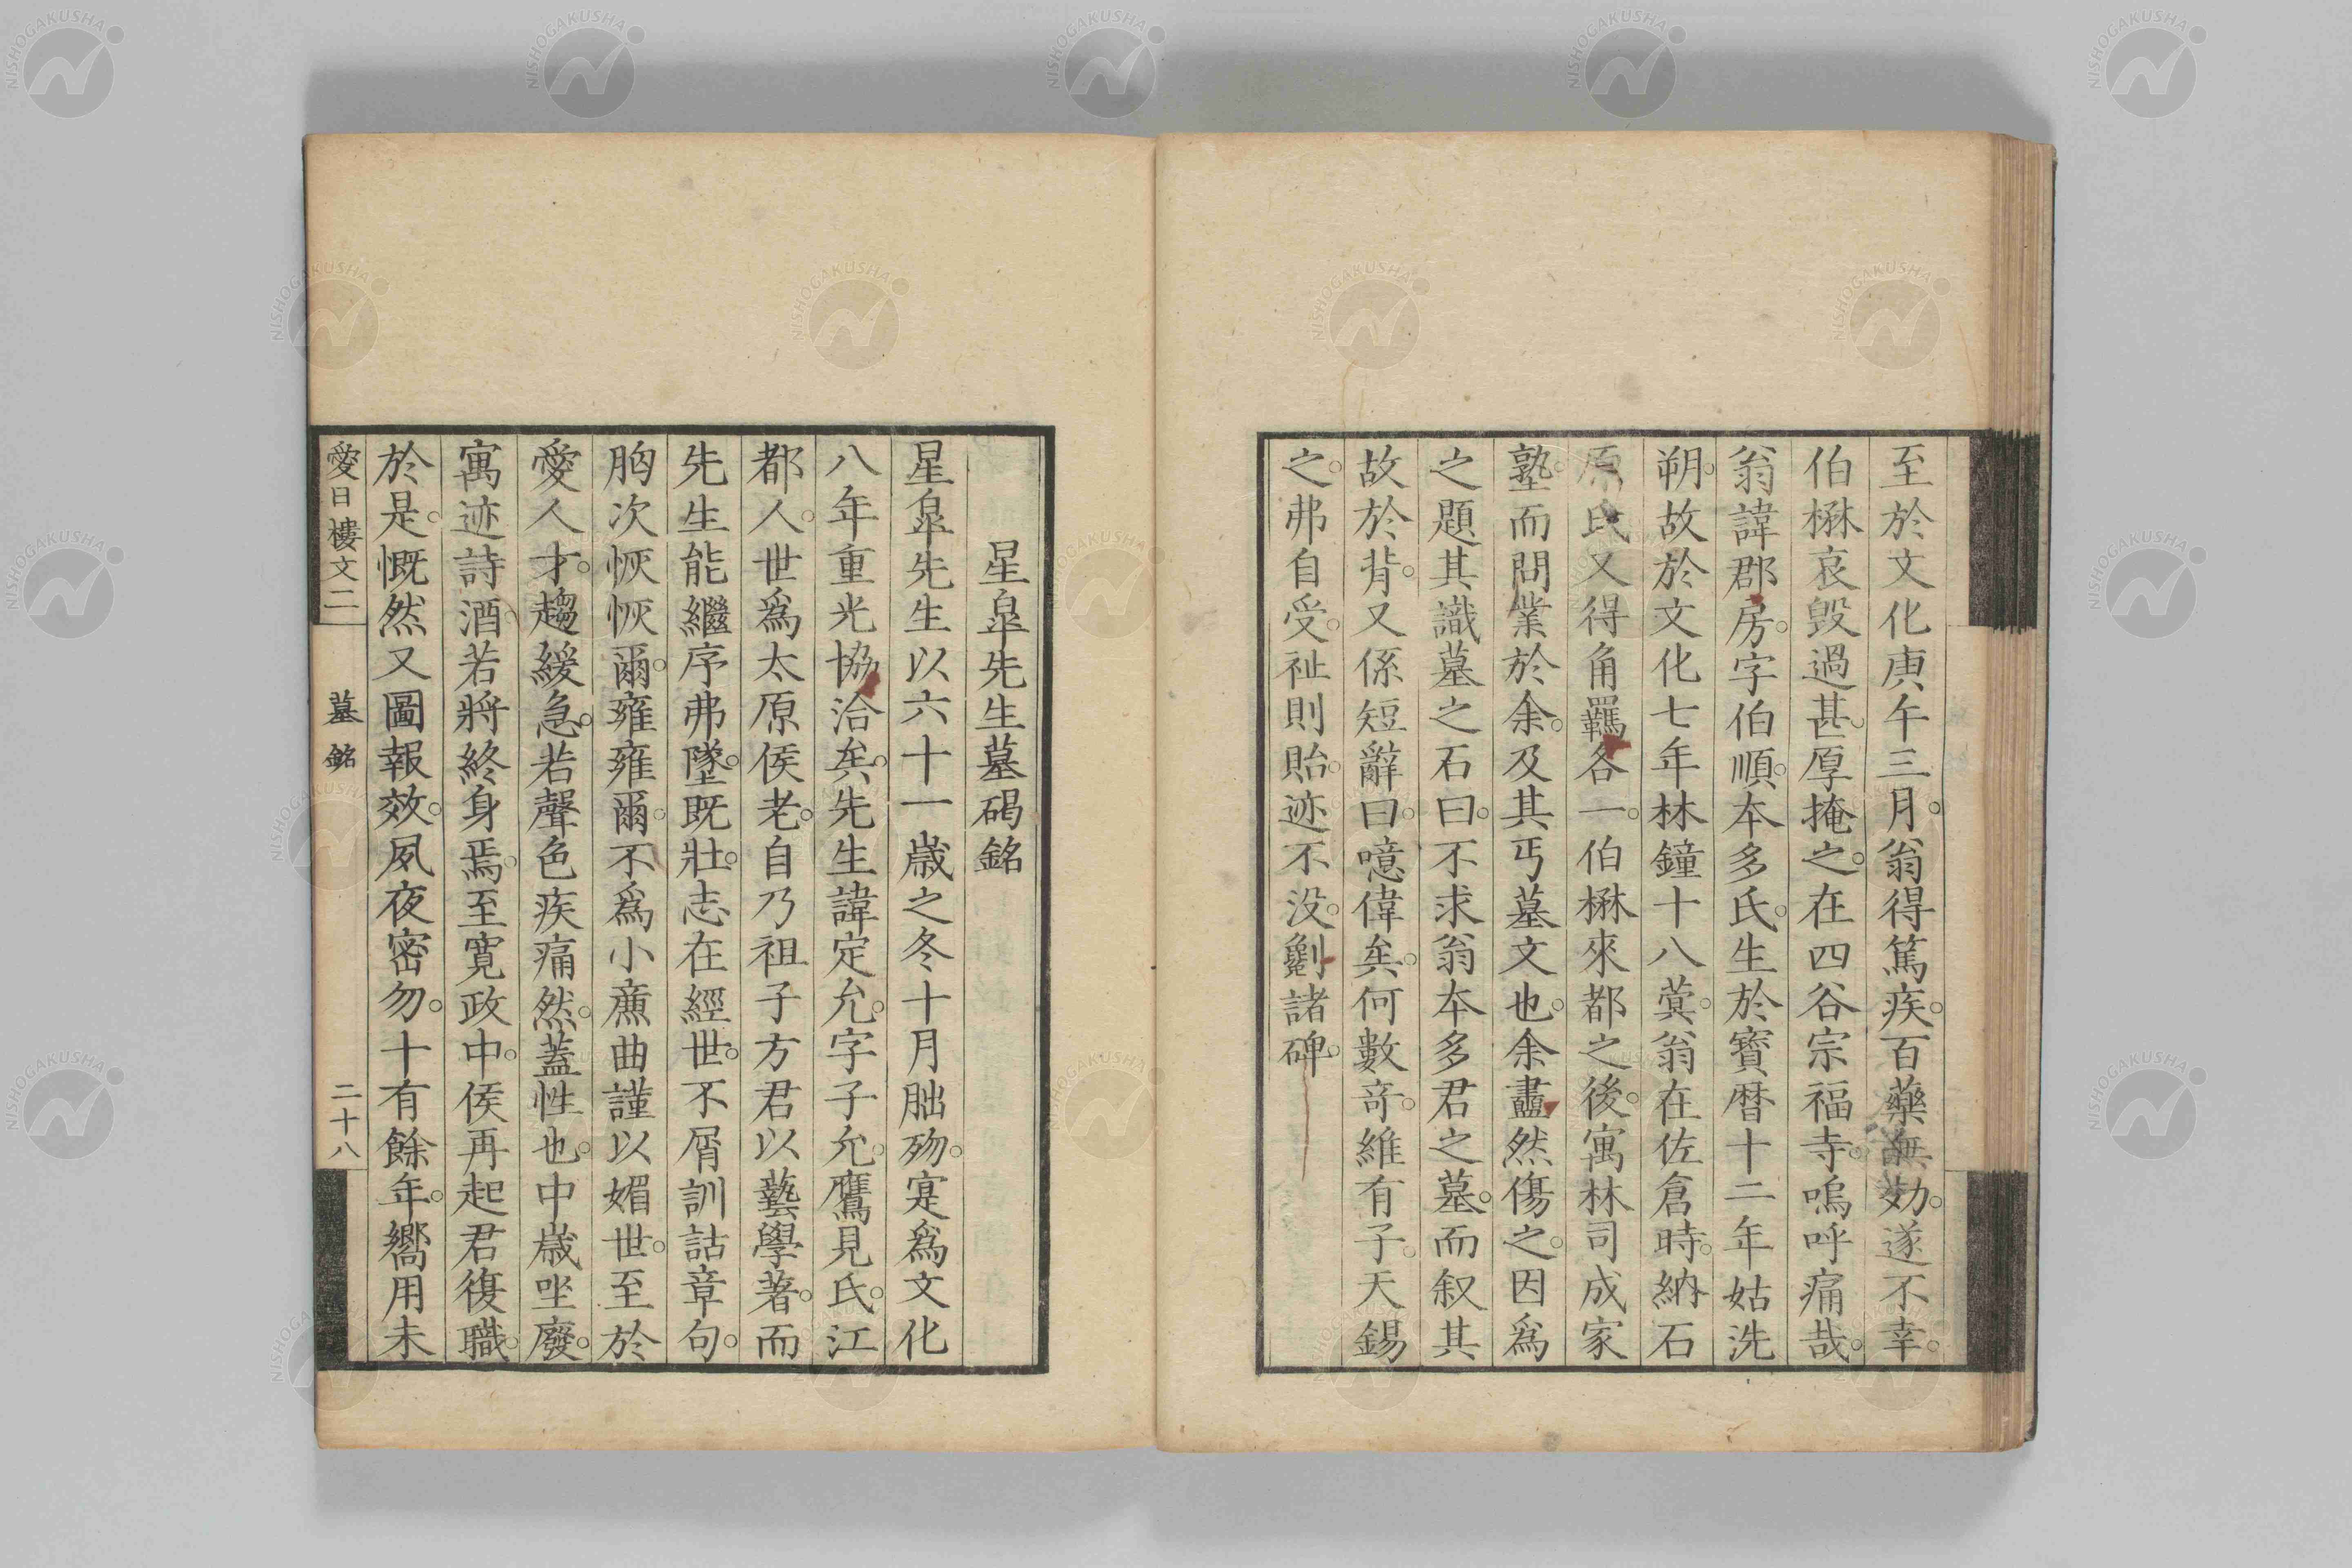 至於文化庚午三月。翁得篤疾。百藥無効。遂不幸。
伯楙哀毀過甚。厚掩之。在四谷宗福寺。嗚呼痛哉。
翁諱郡房。字伯順。本多氏。生於寶暦十二年姑洗
朔。故於文化七年林鐘十八蓂。翁在佐倉時。納石
原氏又得角羈各一。伯楙來都之後。寓林司成家
塾。而問業於余。及其丐墓文也。余衋然傷之。因爲
之題其識墓之石曰。不求翁本多君之墓。而叙其
故於背。又係短辭曰。噫偉矣。何數奇。維有子。天錫
之。弗自受。祉則貽。迹不没。劖諸碑。
星皐先生墓碣銘
星皐先生以六十一歳之冬十月朏歾。寔爲文化
八年重光協洽矣。先生諱定允。字子允。鷹見氏。江
都人。世爲太原侯老。自乃祖子方君以藝學著。而
先生能繼序弗墜。既壯。志在經世。不屑訓詁章句。
胸次恢恢爾。雍雍爾。不爲小廉曲謹以媚世。至於
愛人才。趨緩急。若聲色疾痛然。蓋性也。中歳坐廢。
寓迹詩酒。若將終身焉。至寛政中。侯再起君復職。
於是。慨然又圖報效。夙夜密勿。十有餘年。嚮用未
愛日樓文二 墓銘 二十八
NISHOGAKUSHA